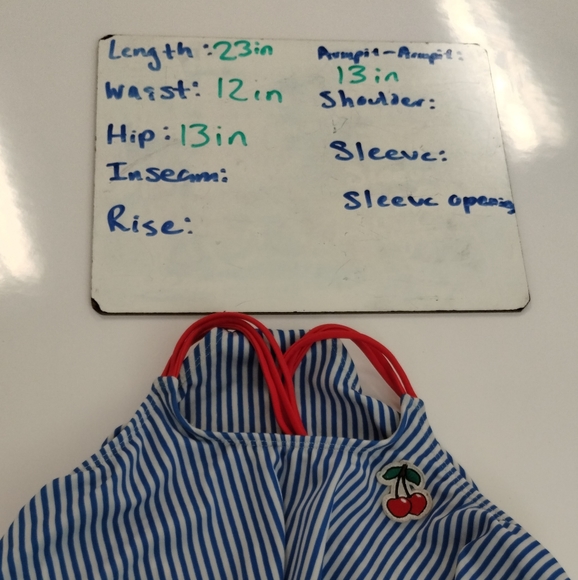 Length: 23in
Waist: 12in
Hip: 13in
Inseam:
Rise:
Armpit-Armpit:
13in
Shoulder:
Sleeve:
Sleeve opening